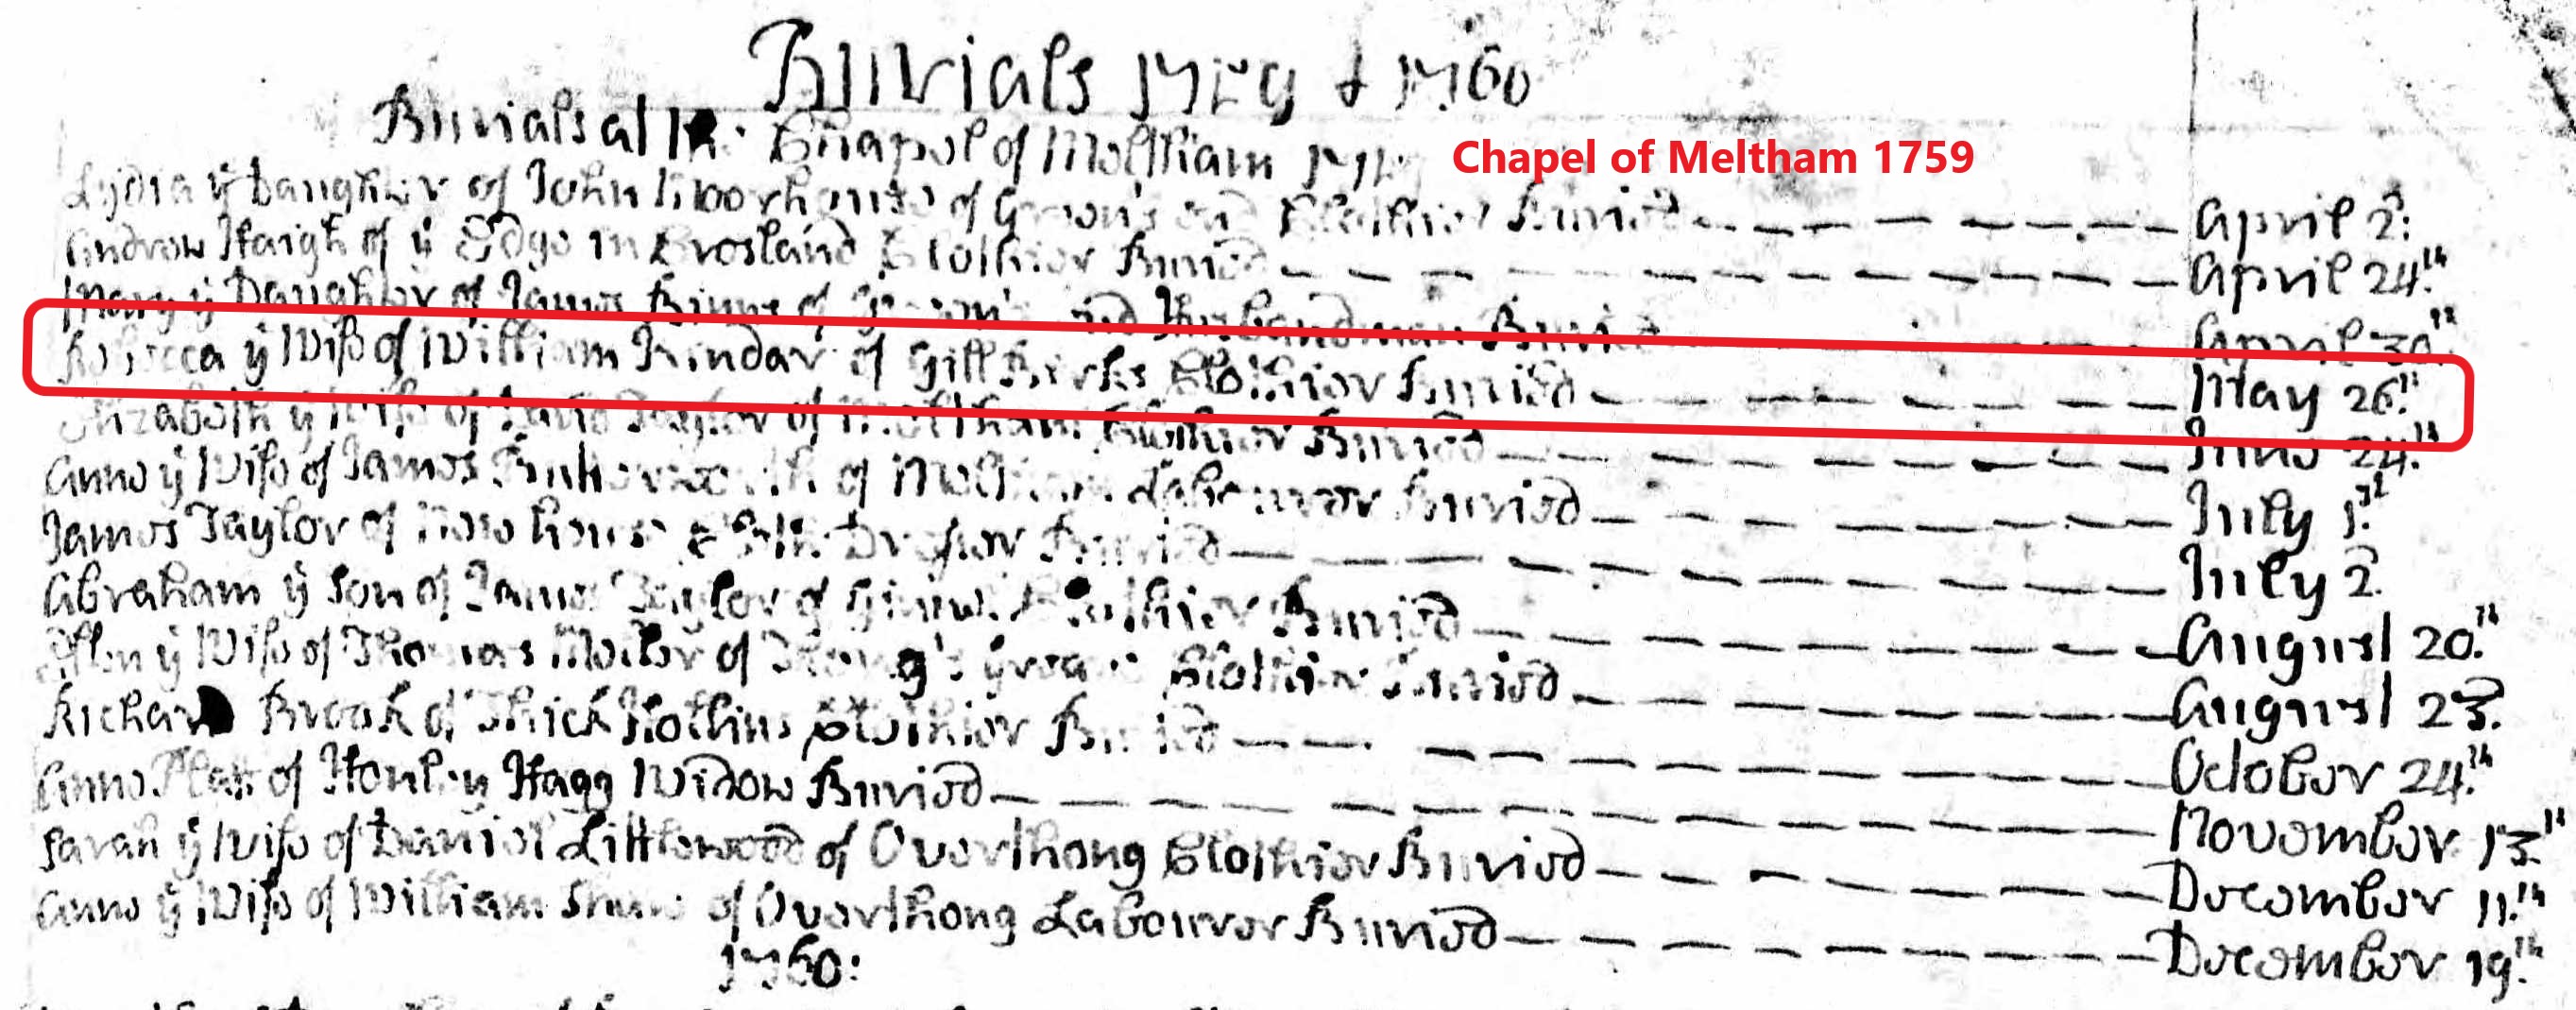 Burials 1759 & 1760
Burials at ye Chapel of Meltham
Chapel of Meltham 1759
Lydia ye Daughter of John of Green's end Clothier Buried April 2d:
Andrew Haigh of ye Edge in Crosland Clothier Buried April 24th
Mary ye Daughter of James Binns of Green's end Husbandman Buried April 30th
Rebecca ye Wife of William Kindar of Gill Birks Clothier Buried May 26th
Elizabeth ye Wife of Taylor of Meltham Clothier Buried June 24th
Anne ye Wife of James of Meltham Labourer Buried July 1st
James Taylor of New house Cloth Dresser Buried July 2d
Abraham ye Son of James Taylor of Clothier Buried August 20th
Ellen ye Wife of Thomas Mellor of Clothier Buried August 23d
Richard Brook of Thick Hollins Clothier Buried October 24th
Anne of Honley Hagg Widow Buried November 13th
Sarah ye Wife of Daniel Littlewood of Overthong Clothier Buried December 11th
Anne ye Wife of William of Overthong Labourer Buried December 19th
1760: